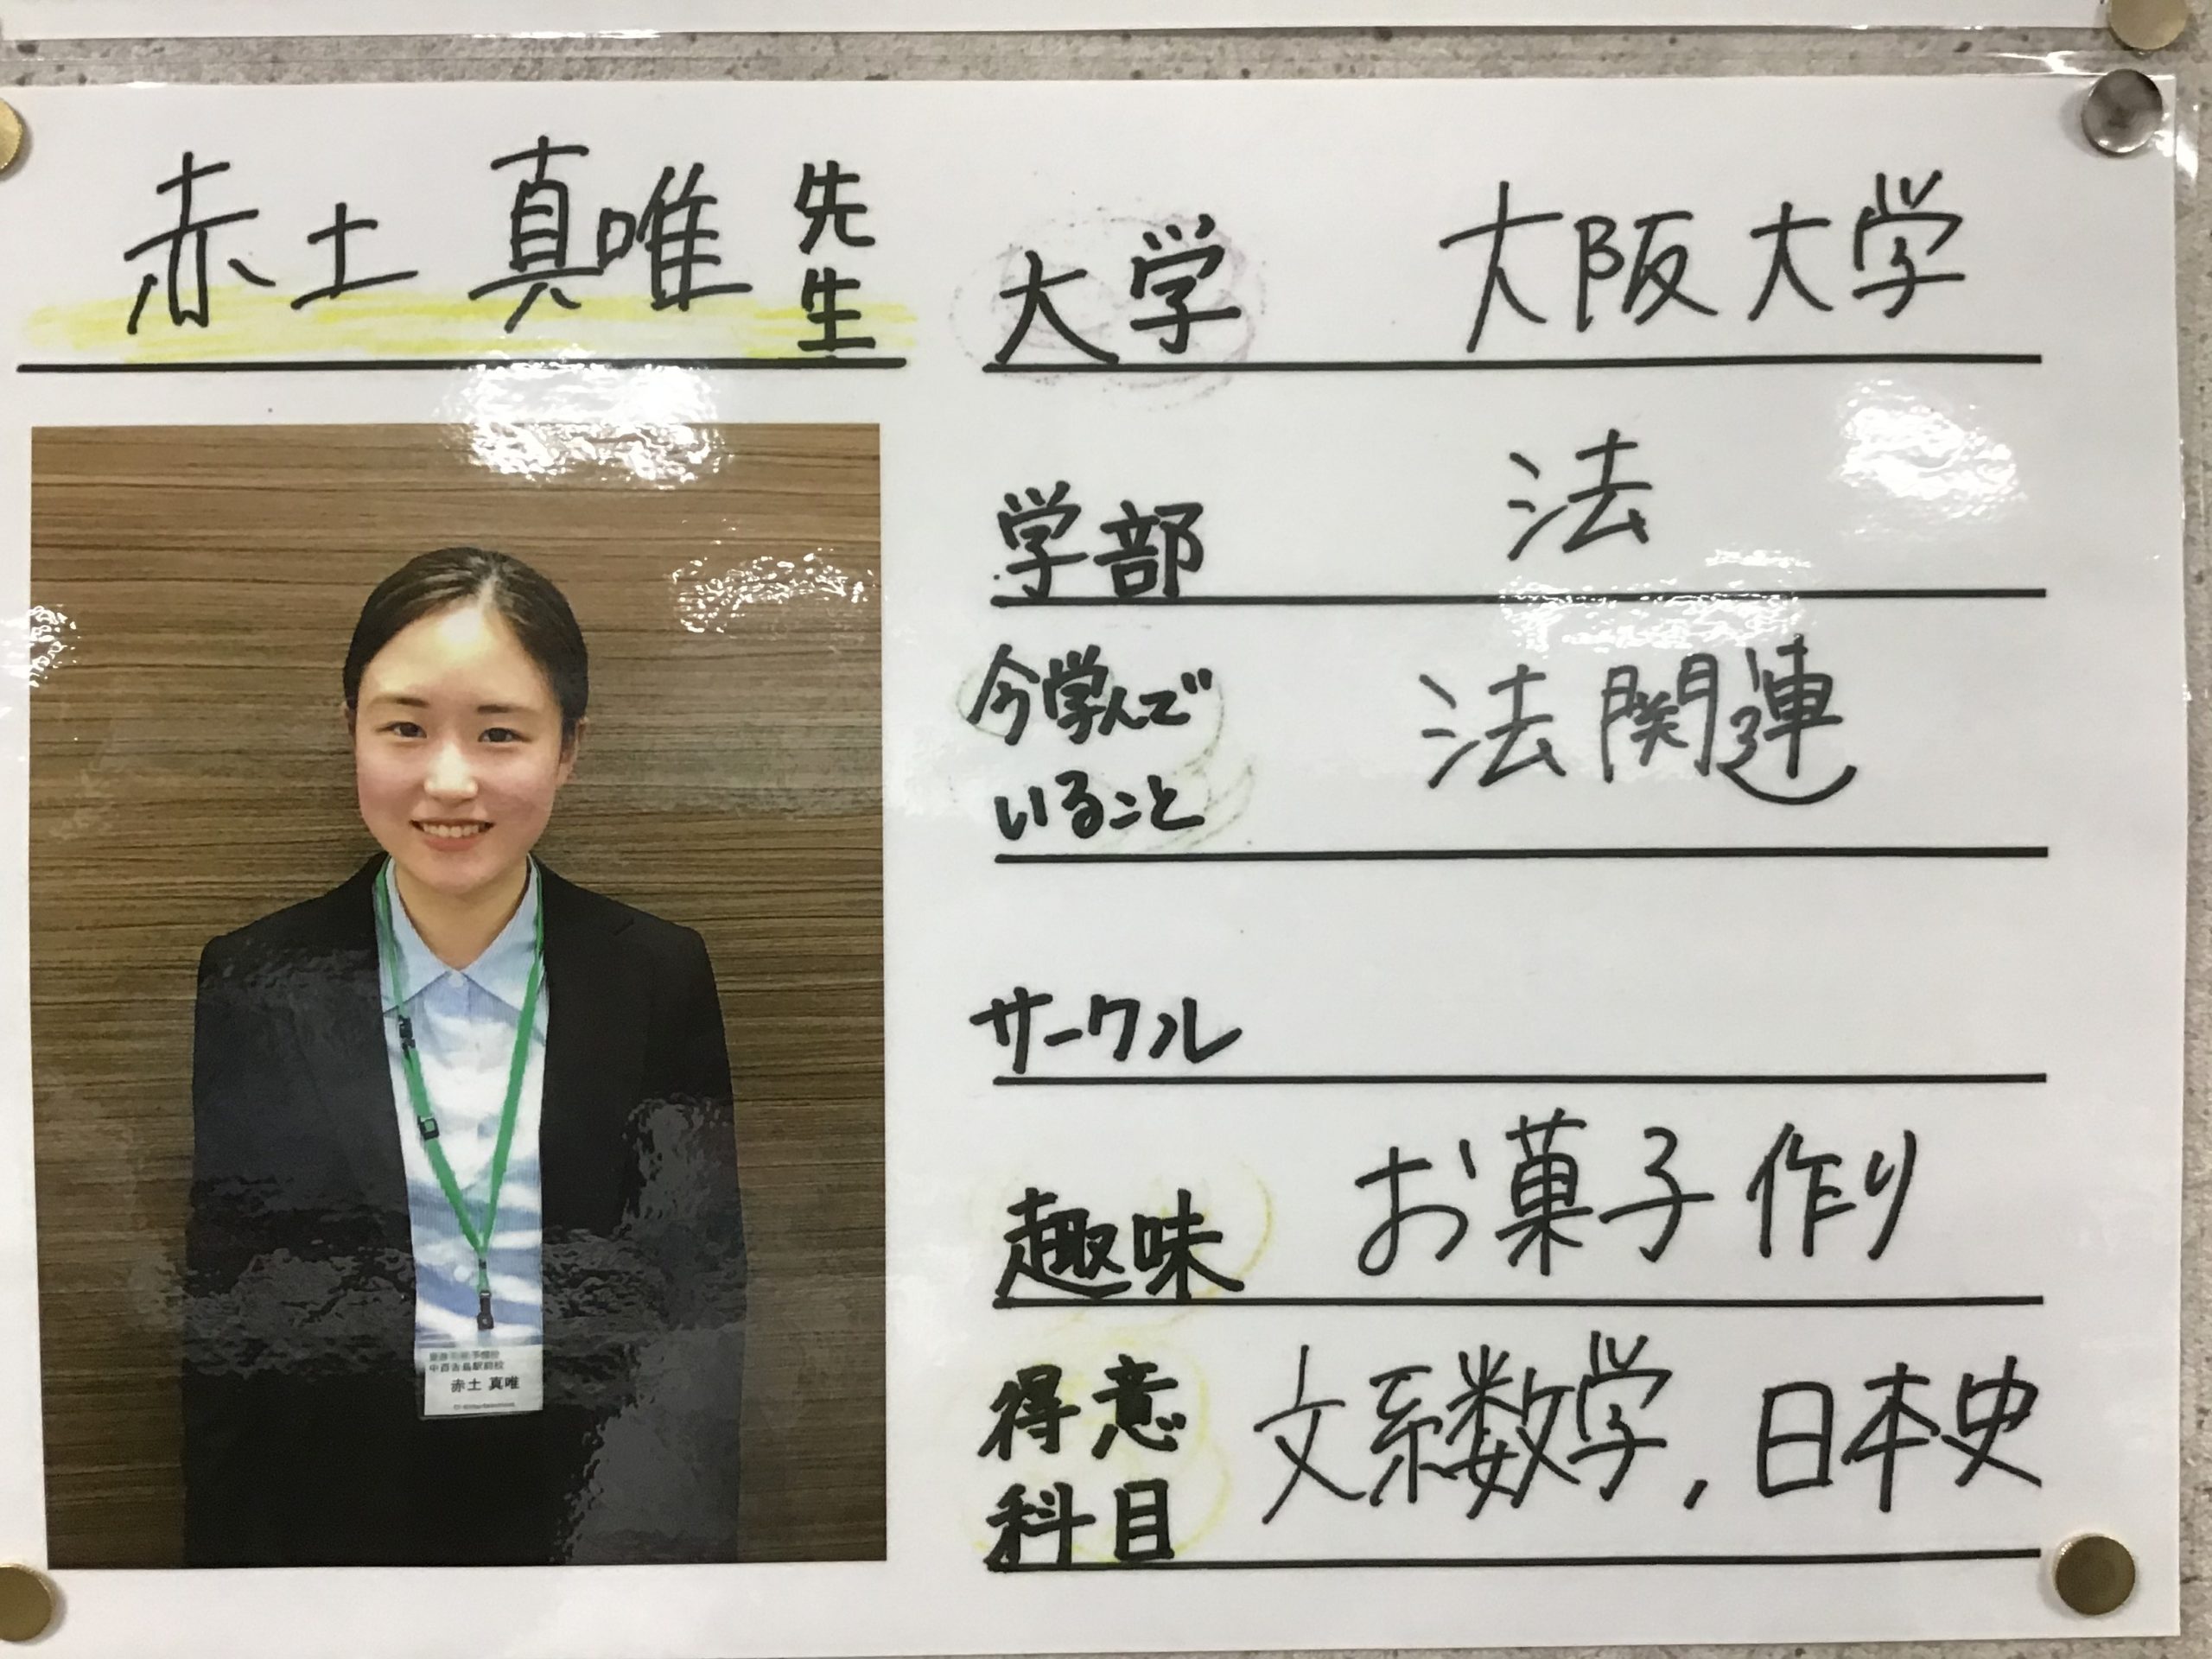 赤土 真唯 先生
大学 大阪大学
学部 法
今学んで
いること 法関連
サークル
趣味 お菓子作り
得意
科目 文系数学, 日本史
中百舌鳥駅前校
赤土 真唯